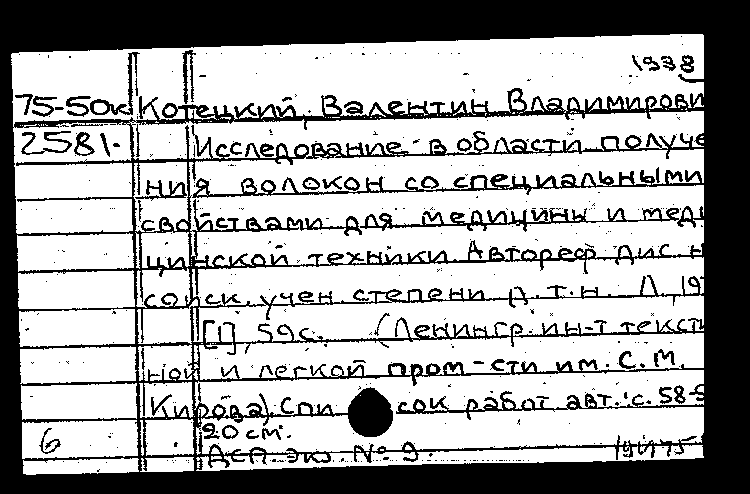 1938
75-50к Котецкий, Валентин Владимирови
2581. Исследование в области получе
ния волокон со специальными
свойствами для медицины и меди
цинской техники. Автореф. дис. н
соиск. учен. степени д.т.н. Л., 19
[1], 59с. (Ленингр. ин-т тексти
ной и легкой пром-сти им. С.М.
Кирова). Список работ авт.: с. 58-5
20 см.
6 ДСП. экз. № 9.